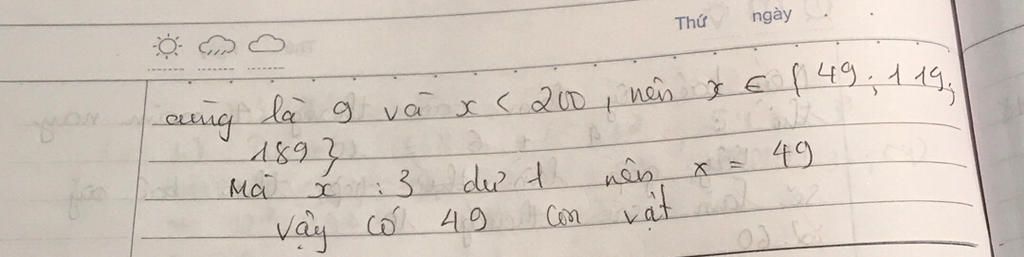 Thứ ngày
cùng là 9 và x < 200, nên x ∈ { 49; 119;
189}
Mà x : 3 dư 1 nên x = 49
vậy có 49 con vật